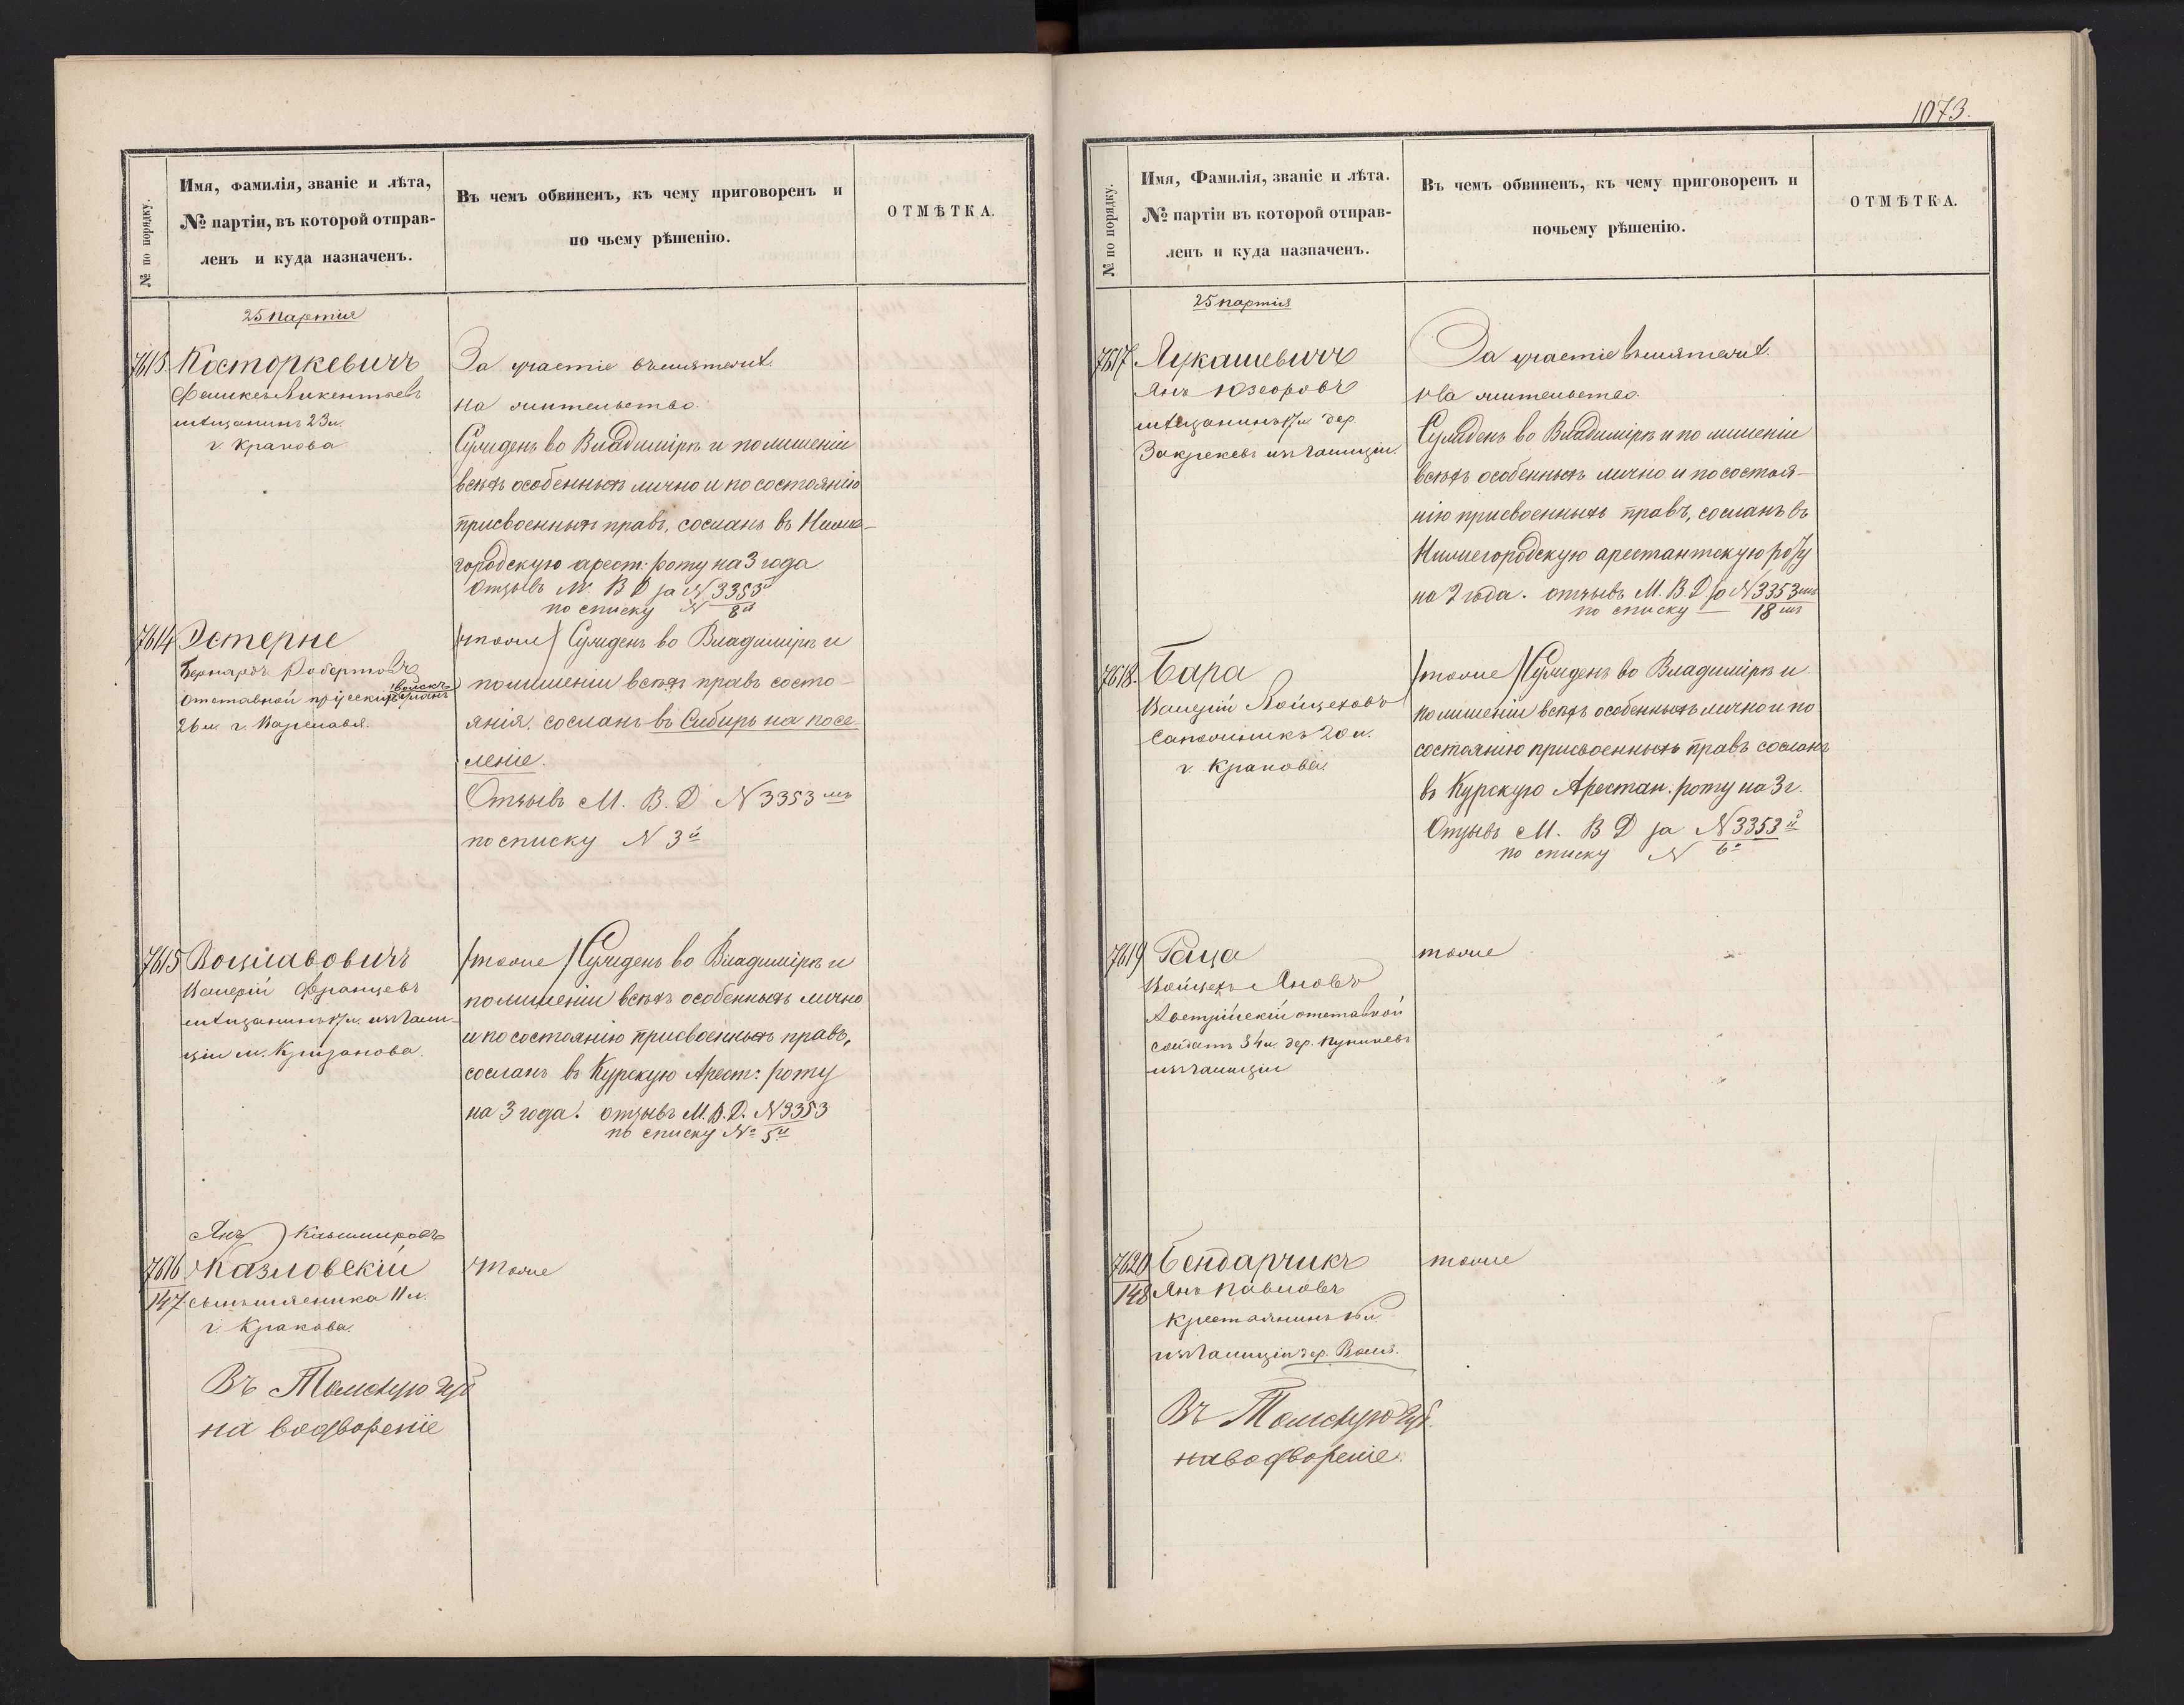 № по порядку.
Имя, фамилія, званіе и лѣта,
№ партіи, въ которой отправ-
ленъ и куда назначенъ.
Въ чемъ обвиненъ, къ чему приговоренъ и
по чьему рѣшенію.
ОТМѢТКА.
25 партия
7613. Косторкевичъ
Феликсъ Викентьевъ
мѣщанинъ 23 л.
г. Кракова
За участіе въ мятежѣ.
на жительство.
Сужденъ во Владимірѣ и по лишеніи
всѣхъ особенныхъ лично и по состоянію
присвоенныхъ правъ, сосланъ въ Ниже-
городскую арест: роту на 3 года
Отзывъ М. В Д за N 3353й
по списку N 8й
7614 Эстерне
Бернардъ Робертовъ
Отставной прусскихъ войскъ
26 л. г.
/тоже/ Сужденъ во Владимірѣ и
по лишеніи всѣхъ правъ состо-
янія. сосланъ въ Сибирь на посе-
леніе.
Отзывъ М. В. Д N 3353мъ
по списку N 3й
7615
Валерій Францевъ
мѣщанинъ 17 л. изъ Гали-
ціи м.
/тоже/ Сужденъ во Владимірѣ и
по лишеніи всѣхъ особенныхъ лично
и по состоянію присвоенныхъ правъ,
сосланъ въ Курскую Арест: роту
на 3 года. отзывъ М. В. Д. N 3353
по списку № 5й
Янъ Казимировъ
7616 Козловскій
147 сынъ 11 л.
г. Кракова.
тоже
Въ Томскую губ
на водвореніе
1073.
№ по порядку.
Имя, Фамилія, званіе и лѣта.
№ партіи въ которой отправ-
ленъ и куда назначенъ.
Въ чемъ обвиненъ, къ чему приговоренъ и
почьему рѣшенію.
ОТМѢТКА.
25 партія
7617 Лукашевичъ
Янъ Юзефовъ
мѣщанинъ 17 л. дер.
Закрекевъ изъ Галиціи.
За участіе въ мятежѣ.
На жительство.
Сужденъ во Владимірѣ и по лишеніи
всѣхъ особенныхъ лично и по состоя-
нію присвоенныхъ правъ, сосланъ въ
Нижегородскую арестантскую роту
на 2 года. отзывъ М. В. Д за N 3353мъ
по списку — 18мъ
7618. Бара
Валерій Войцеховъ
Сапожникъ 20 л.
г. Кракова.
/тоже/ Сужденъ во Владимірѣ и
по лишеніи всѣхъ особенныхъ лично и по
состоянію присвоенныхъ правъ сосланъ
въ Курскую Арестан: роту на 3 г.
Отзывъ М. В Д за N 3353й
по списку N 6й
7619 Гаца
Войцехъ Яновъ
Австрійскій отставной
солдатъ 34 л. дер.
изъ Галиціи
тоже
7620 Бендарчикъ
148 Янъ Павловъ
Крестьянинъ 16 л.
изъ Галиціи дер.
тоже
Въ Томскую Губ.
на водвореніе.